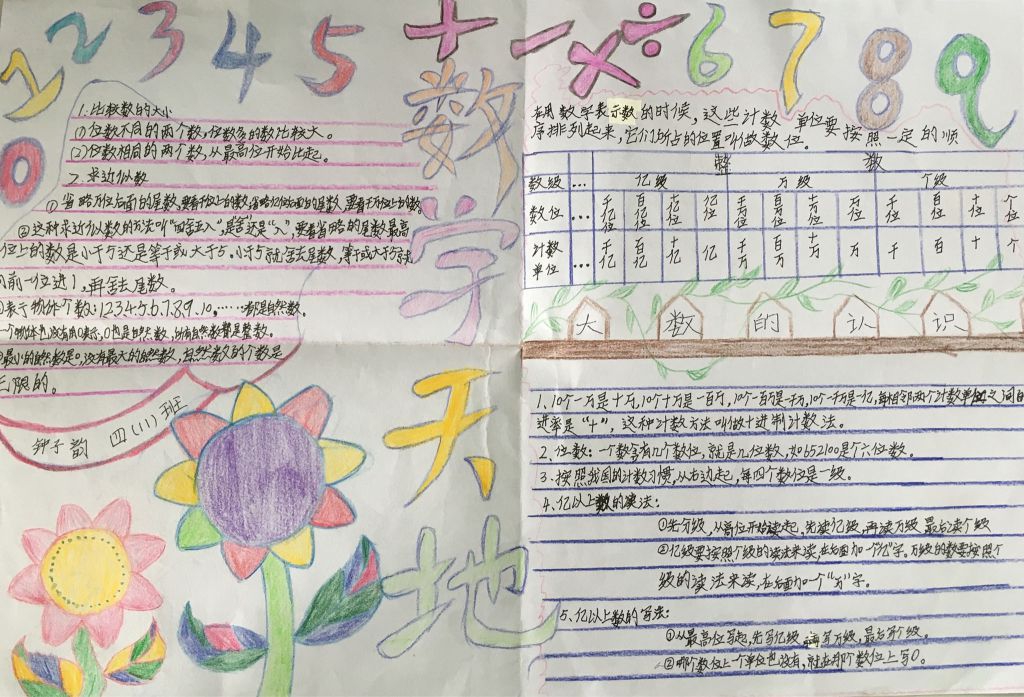 0 1 2 3 4 5 + - × ÷ 6 7 8 9
数学天地
1. 比较数的大小
(1)位数不同的两个数,位数多的数比较大。
(2)位数相同的两个数,从最高位开始比起。
2. 求近似数
①省略万位后面的尾数,要看千位上的数,省略亿位后面的尾数,要看千万位上的数。
②这种求近似数的方法叫"四舍五入",是"舍"还是"入",要看省略的尾数最高
位上的数是小于5还是等于或大于5。小于5就舍去尾数,等于或大于5就
向前一位进1,再舍去尾数。
表示物体个数:1.2.3.4.5.6.7.8.9.10.……都是自然数。
一个物体也没有用0表示,0也是自然数,所有自然数都是整数。
最小的自然数是0,没有最大的自然数,自然数的个数是
无限的。
钟子韵 四(11)班
在用数字表示数的时候,这些计数单位要按照一定的顺
序排列起来,它们所占的位置叫做数位。
整 数
数级 … 亿级 万级 个级
数位 … 千亿位 百亿位 十亿位 亿位 千万位 百万位 十万位 万位 千位 百位 十位 个位
计数单位 … 千亿 百亿 十亿 亿 千万 百万 十万 万 千 百 十 个
大数的认识
1、10个一万是十万,10个十万是一百万,10个一百万是一千万,10个一千万是一亿,每相邻两个计数单位之间的
进率是"十",这种计数方法叫做十进制计数法。
2、位数:一个数含有几个数位,就是几位数,如652100是个六位数。
3、按照我国的计数习惯,从右边起,每四个数位是一级。
4、亿以上数的读法:
①先分级,从高位开始读起,先读亿级,再读万级,最后读个级
②亿级要按照个级的读法来读,在后面加一个"亿"字。万级的数要按照个
级的读法来读,在后面加一个"万"字。
5、亿以上数的写法:
①从最高位写起,先写亿级,再写万级,最后写个级。
②哪个数位上一个单位也没有,就在那个数位上写0。